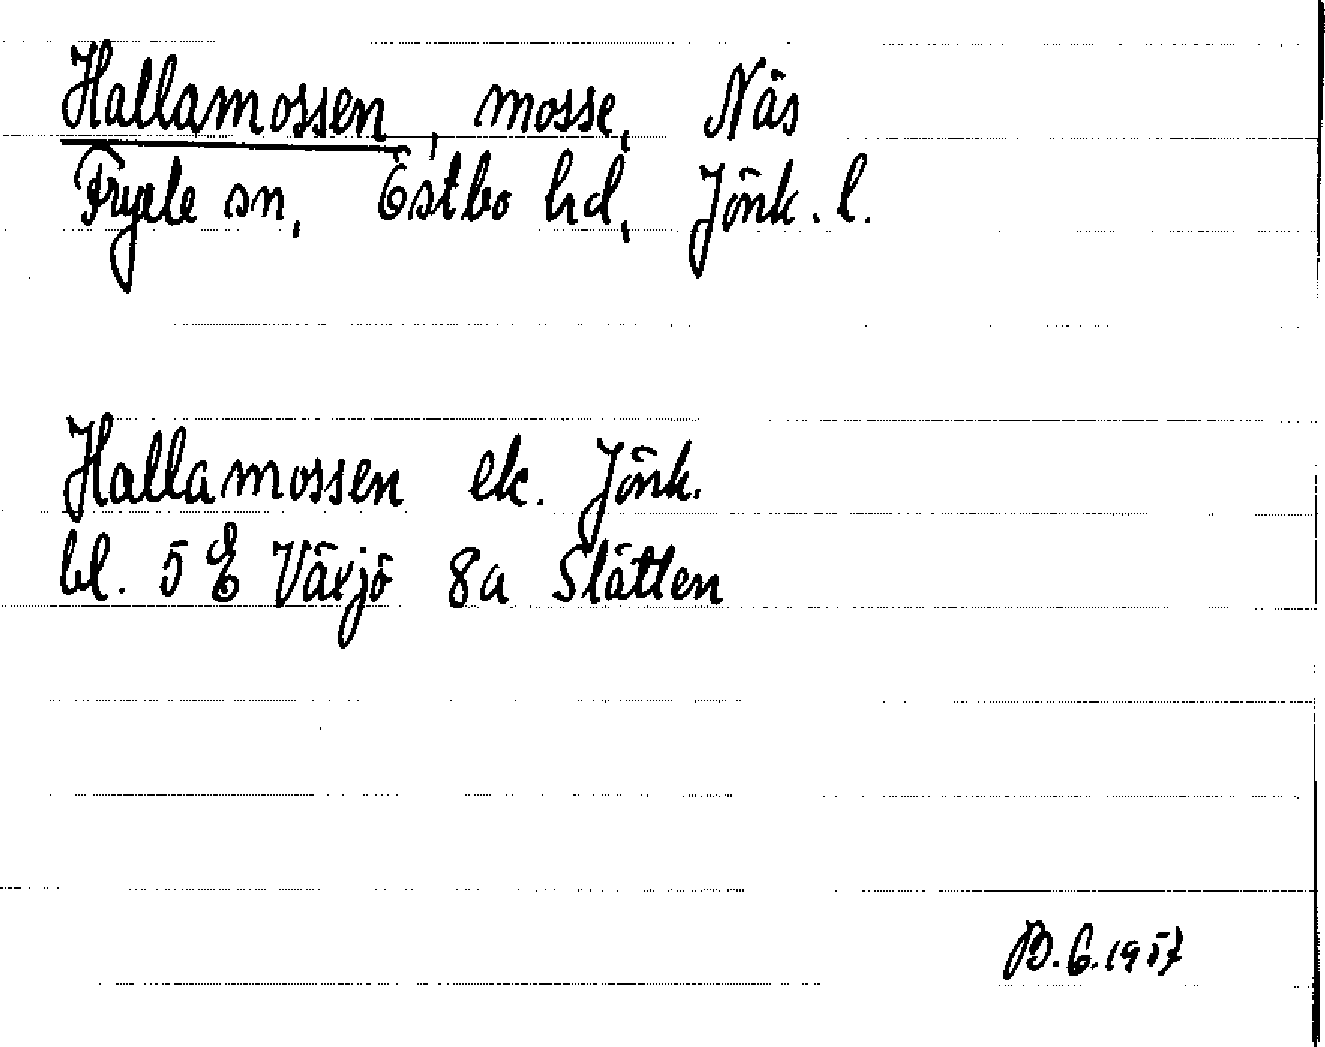 Hallamossen, mosse, Näs
Fryele sn, Östbo hd, Jönk. l.
Hallamossen ek. Jönk.
bl. 5 E Växjö 8a Slätten
B. G. 1957